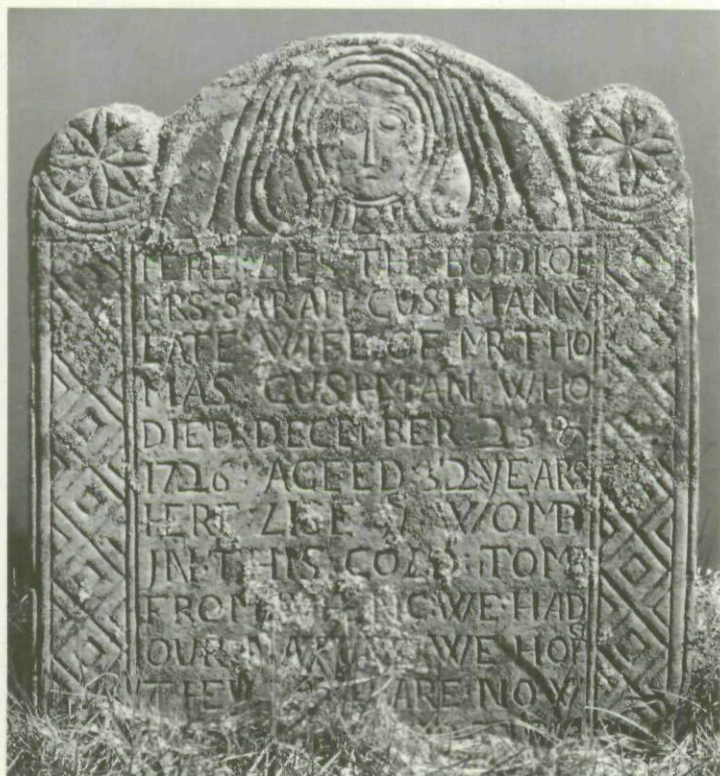 HERE LIES THE BODI OF
MRS SARAH CUSHMAN Y
LATE WIFE OF MR THO
MAS CUSHMAN WHO
DIED DECEMBER 23
1726 AGEED 32 YEARS
HERE LIES WOMB
JN THIS COLD TOMB
FROM WE HAD
OUR WE HOP
ARE NOW